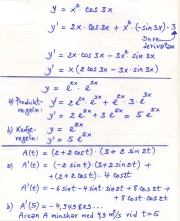 y = x² cos 3x
y' = 2x · cos 3x + x² · (-sin 3x) · 3
Inre
derivatan
y' = 2x · cos 3x - 3x² sin 3x
y' = x (2 cos 3x - 3x · sin 3x)
y = e^2x · e^3x
a) Produkt-
regeln: y' = 2e^2x · e^3x + e^2x · 3 · e^3x
y' = 2e^5x + 3e^5x = 5e^5x
b) Kedje- y = e^5x
regeln: y' = 5e^5x
A(t) = (2+2cos t) · (3+2 sin 2t)
a) A'(t) = (-2 sin t) · (3+2 sin 2t) +
+ (2+2 cos t) · 4 cos 2t
A'(t) = -6 sin t - 4 sin t · sin 2t + 8 cos 2t
+ 8 cos t · cos 2t
b) A'(5) = -9,
Arean minskar med m²/s vid t=5